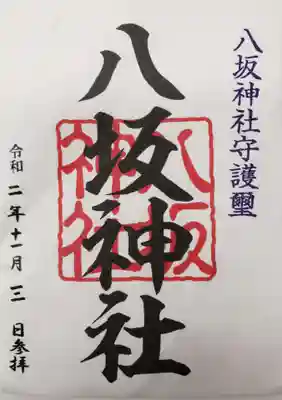 八坂神社守護璽
八坂神社
八坂神社
令和二年十一月三日参拝